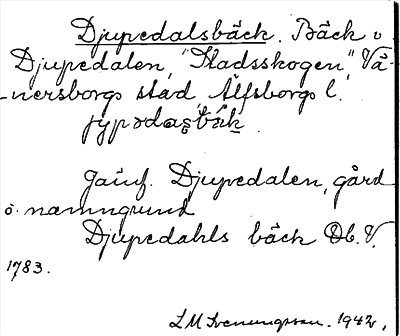 Djupedalsbäck. Bäck i
Djupedalen, "Stadsskogen", Vä-
nersborgs stad Älfsborgs l.
jypədaʂbäk
Jämf. Djupedalen, gård
o. namngrund
Djupedahls bäck Ob. V.
1783.
L M Svenungsson. 1942.